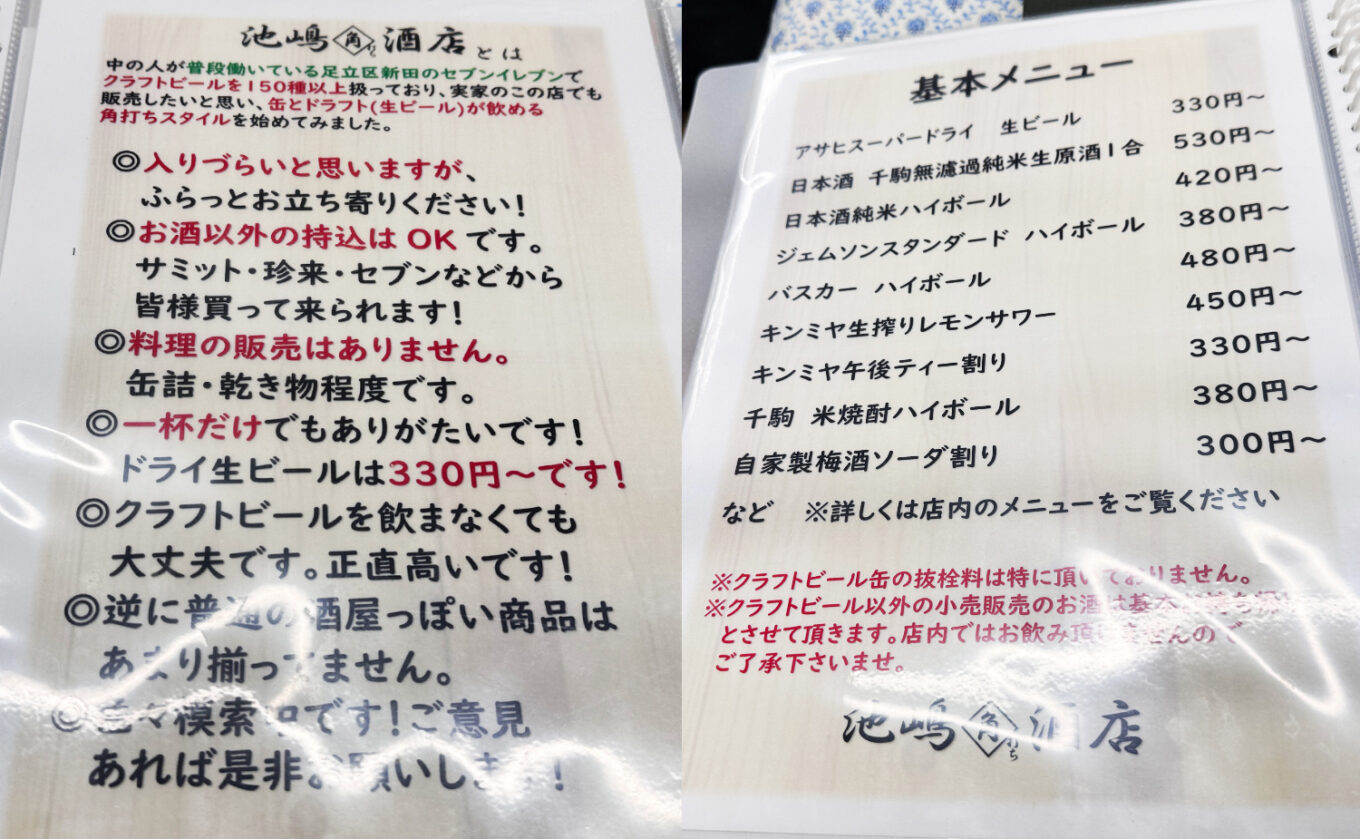 池嶋角打ち酒店とは
中の人が普段働いている足立区新田のセブンイレブンで
クラフトビールを150種以上扱っており、実家のこの店でも
販売したいと思い、缶とドラフト(生ビール)が飲める
角打ちスタイルを始めてみました。
◎入りづらいと思いますが、
ふらっとお立ち寄りください!
◎お酒以外の持込はOKです。
サミット・珍来・セブンなどから
皆様買って来られます!
◎料理の販売はありません。
缶詰・乾き物程度です。
◎一杯だけでもありがたいです!
ドライ生ビールは330円〜です!
◎クラフトビールを飲まなくても
大丈夫です。正直高いです!
◎逆に普通の酒屋っぽい商品は
あまり揃ってません。
◎色々模索中です!ご意見
あれば是非お願いします!
基本メニュー
アサヒスーパードライ 生ビール 330円〜
日本酒 千駒無濾過純米生原酒1合 530円〜
日本酒純米ハイボール 420円〜
ジェムソンスタンダード ハイボール 380円〜
バスカー ハイボール 480円〜
キンミヤ生搾りレモンサワー 450円〜
キンミヤ午後ティー割り 330円〜
千駒 米焼酎ハイボール 380円〜
自家製梅酒ソーダ割り 300円〜
など ※詳しくは店内のメニューをご覧ください
※クラフトビール缶の抜栓料は特に頂いておりません。
※クラフトビール以外の小売販売のお酒は基本お持ち帰り
とさせて頂きます。店内ではお飲み頂けませんので
ご了承下さいませ。
池嶋角打ち酒店